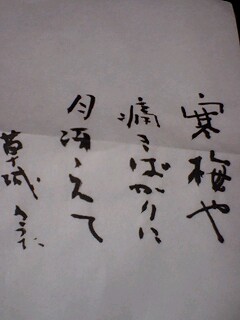 寒梅や
痛きばかりに
月冴えて
草城